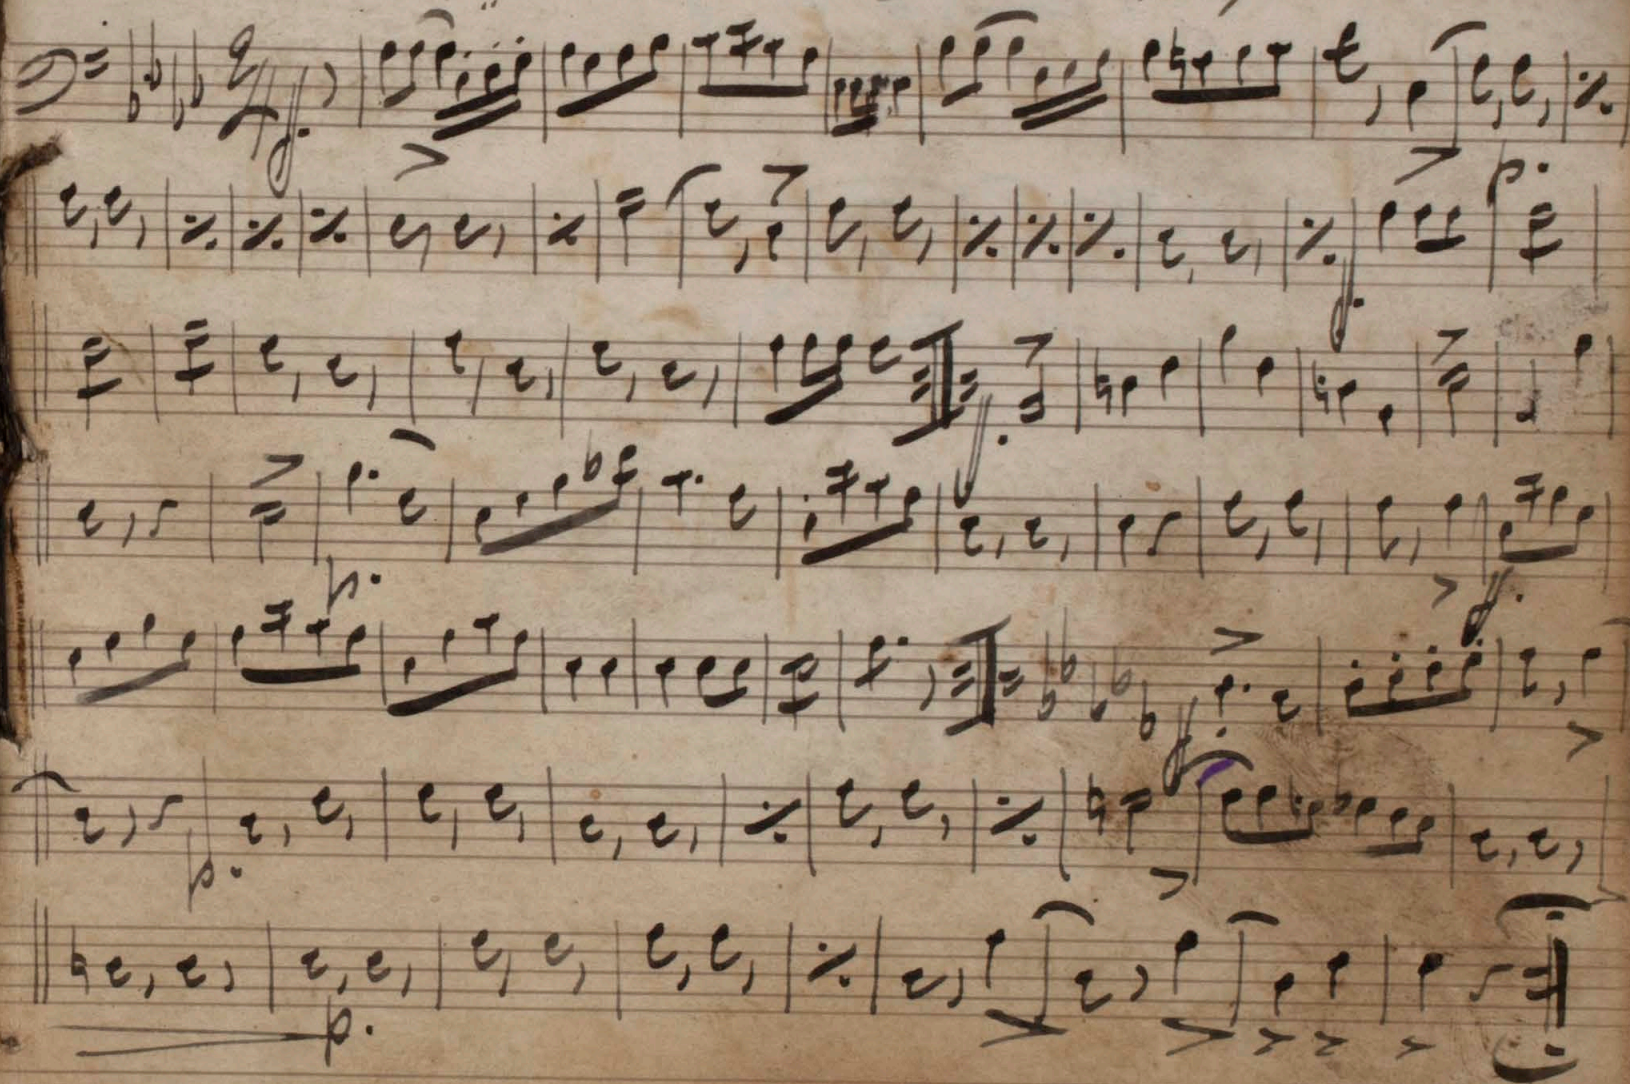 2/4 ff.
p.
ff.
ff.
p. ff.
ff.
p.
p.